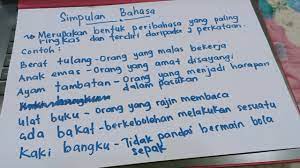 Simpulan Bahasa
Merupakan bentuk peribahasa yang paling
ringkas dan terdiri daripada 2 perkataan.
Contoh:
Berat tulang - Orang yang malas bekerja
Anak emas - Orang yang amat disayangi
Ayam tambatan - Orang yang menjadi harapan
dalam pasukan
ulat buku - orang yang rajin membaca
ada bakat - berkebolehan melakukan sesuatu
Kaki bangku - Tidak pandai bermain bola
sepak